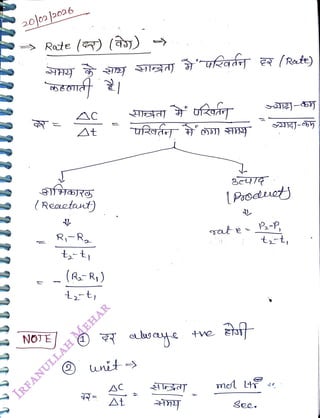 20/02/2026
→ Rate (दर) (वेग) →
समय के साथ सान्द्रता में परिवर्तन दर (Rate)
कहलाती है।
दर = ΔC / Δt = सान्द्रता में परिवर्तन / परिवर्तन में लगा समय = ज्यादा-कम / ज्यादा-कम
अभिकारक उत्पाद
(Reactant) (Product)
⇓ ⇓
= R₁-R₂ / t₂-t₁ rate = P₂-P₁ / t₂-t₁
= - (R₂-R₁) / t₂-t₁
NOTE ① दर always +ve होगी
② unit →
दर = ΔC / Δt = सान्द्रता / समय = mol Ltr⁻ / Sec.
IRFANULLAH MEHAR